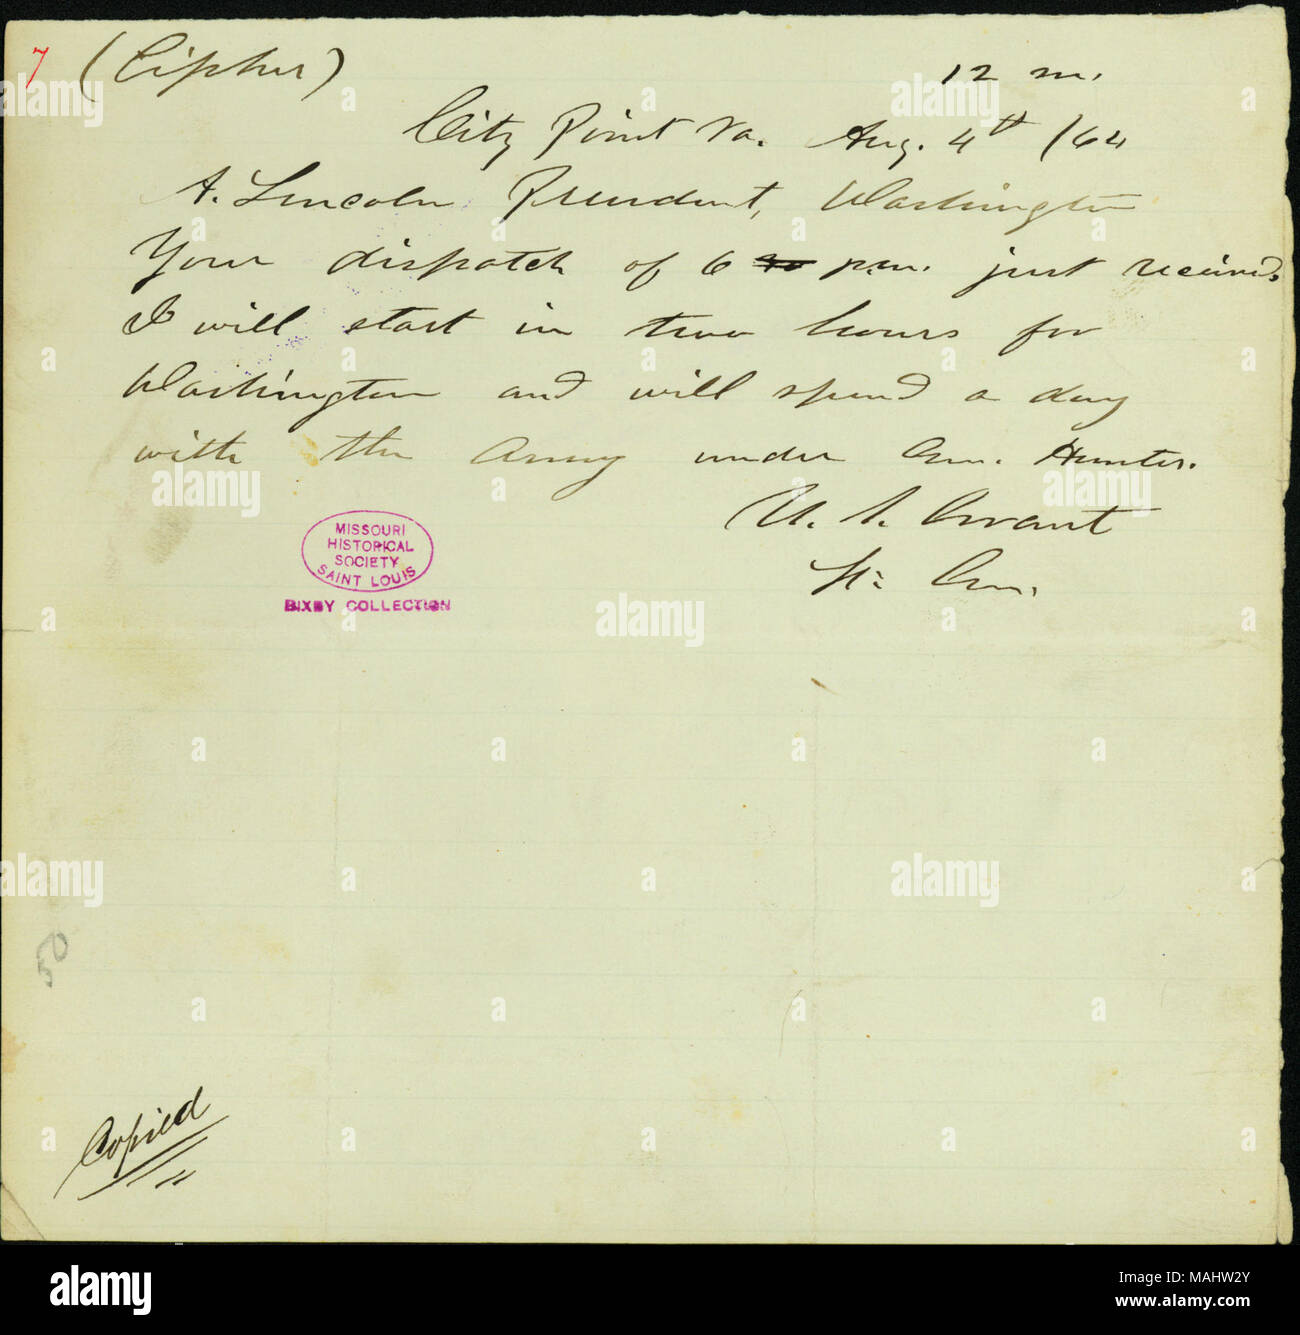 7 (Cipher) 12 m.
City Point Va. Aug. 4th /64
A. Lincoln President, Washington
Your dispatch of 6 p.m. just received.
I will start in two hours for
Washington and will spend a day
with the Army under Gen. Hunter.
U. S. Grant
Lt. Gen.
MISSOURI
HISTORICAL
SOCIETY
SAINT LOUIS
BIXBY COLLECTION
50
Copied
alamy
Image ID: MAHW2Y
www.alamy.com